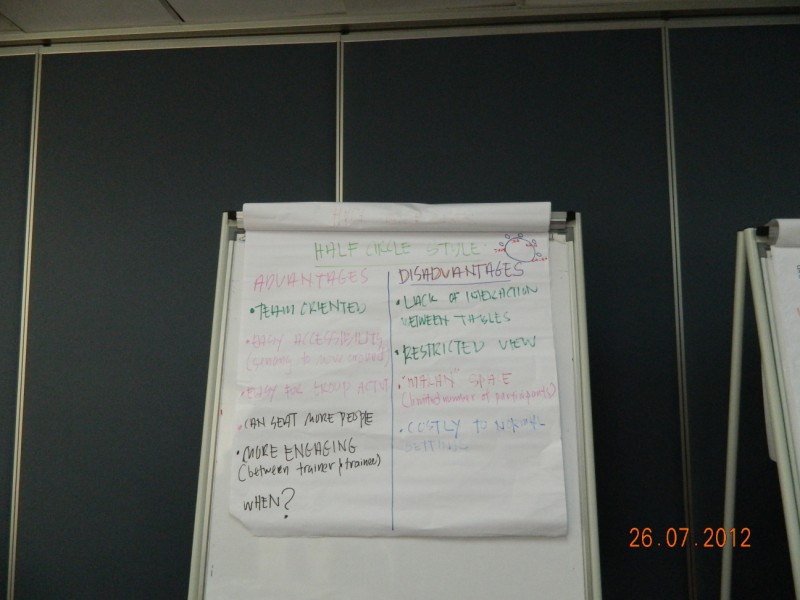 HALF CIRCLE STYLE
ADVANTAGES
• TEAM ORIENTED
• EASY ACCESSIBILITY
• EASY FOR GROUP ACTVT
• CAN SEAT MORE PEOPLE
• MORE ENGAGING
(between trainer & trainee)
WHEN?
DISADVANTAGES
• LACK OF INTERACTION
BETWEEN TABLES
• RESTRICTED VIEW
• "MAKAN" SPACE
(limited number of participants)
• COSTLY TO NORMAL
SETTINGS
26.07.2012